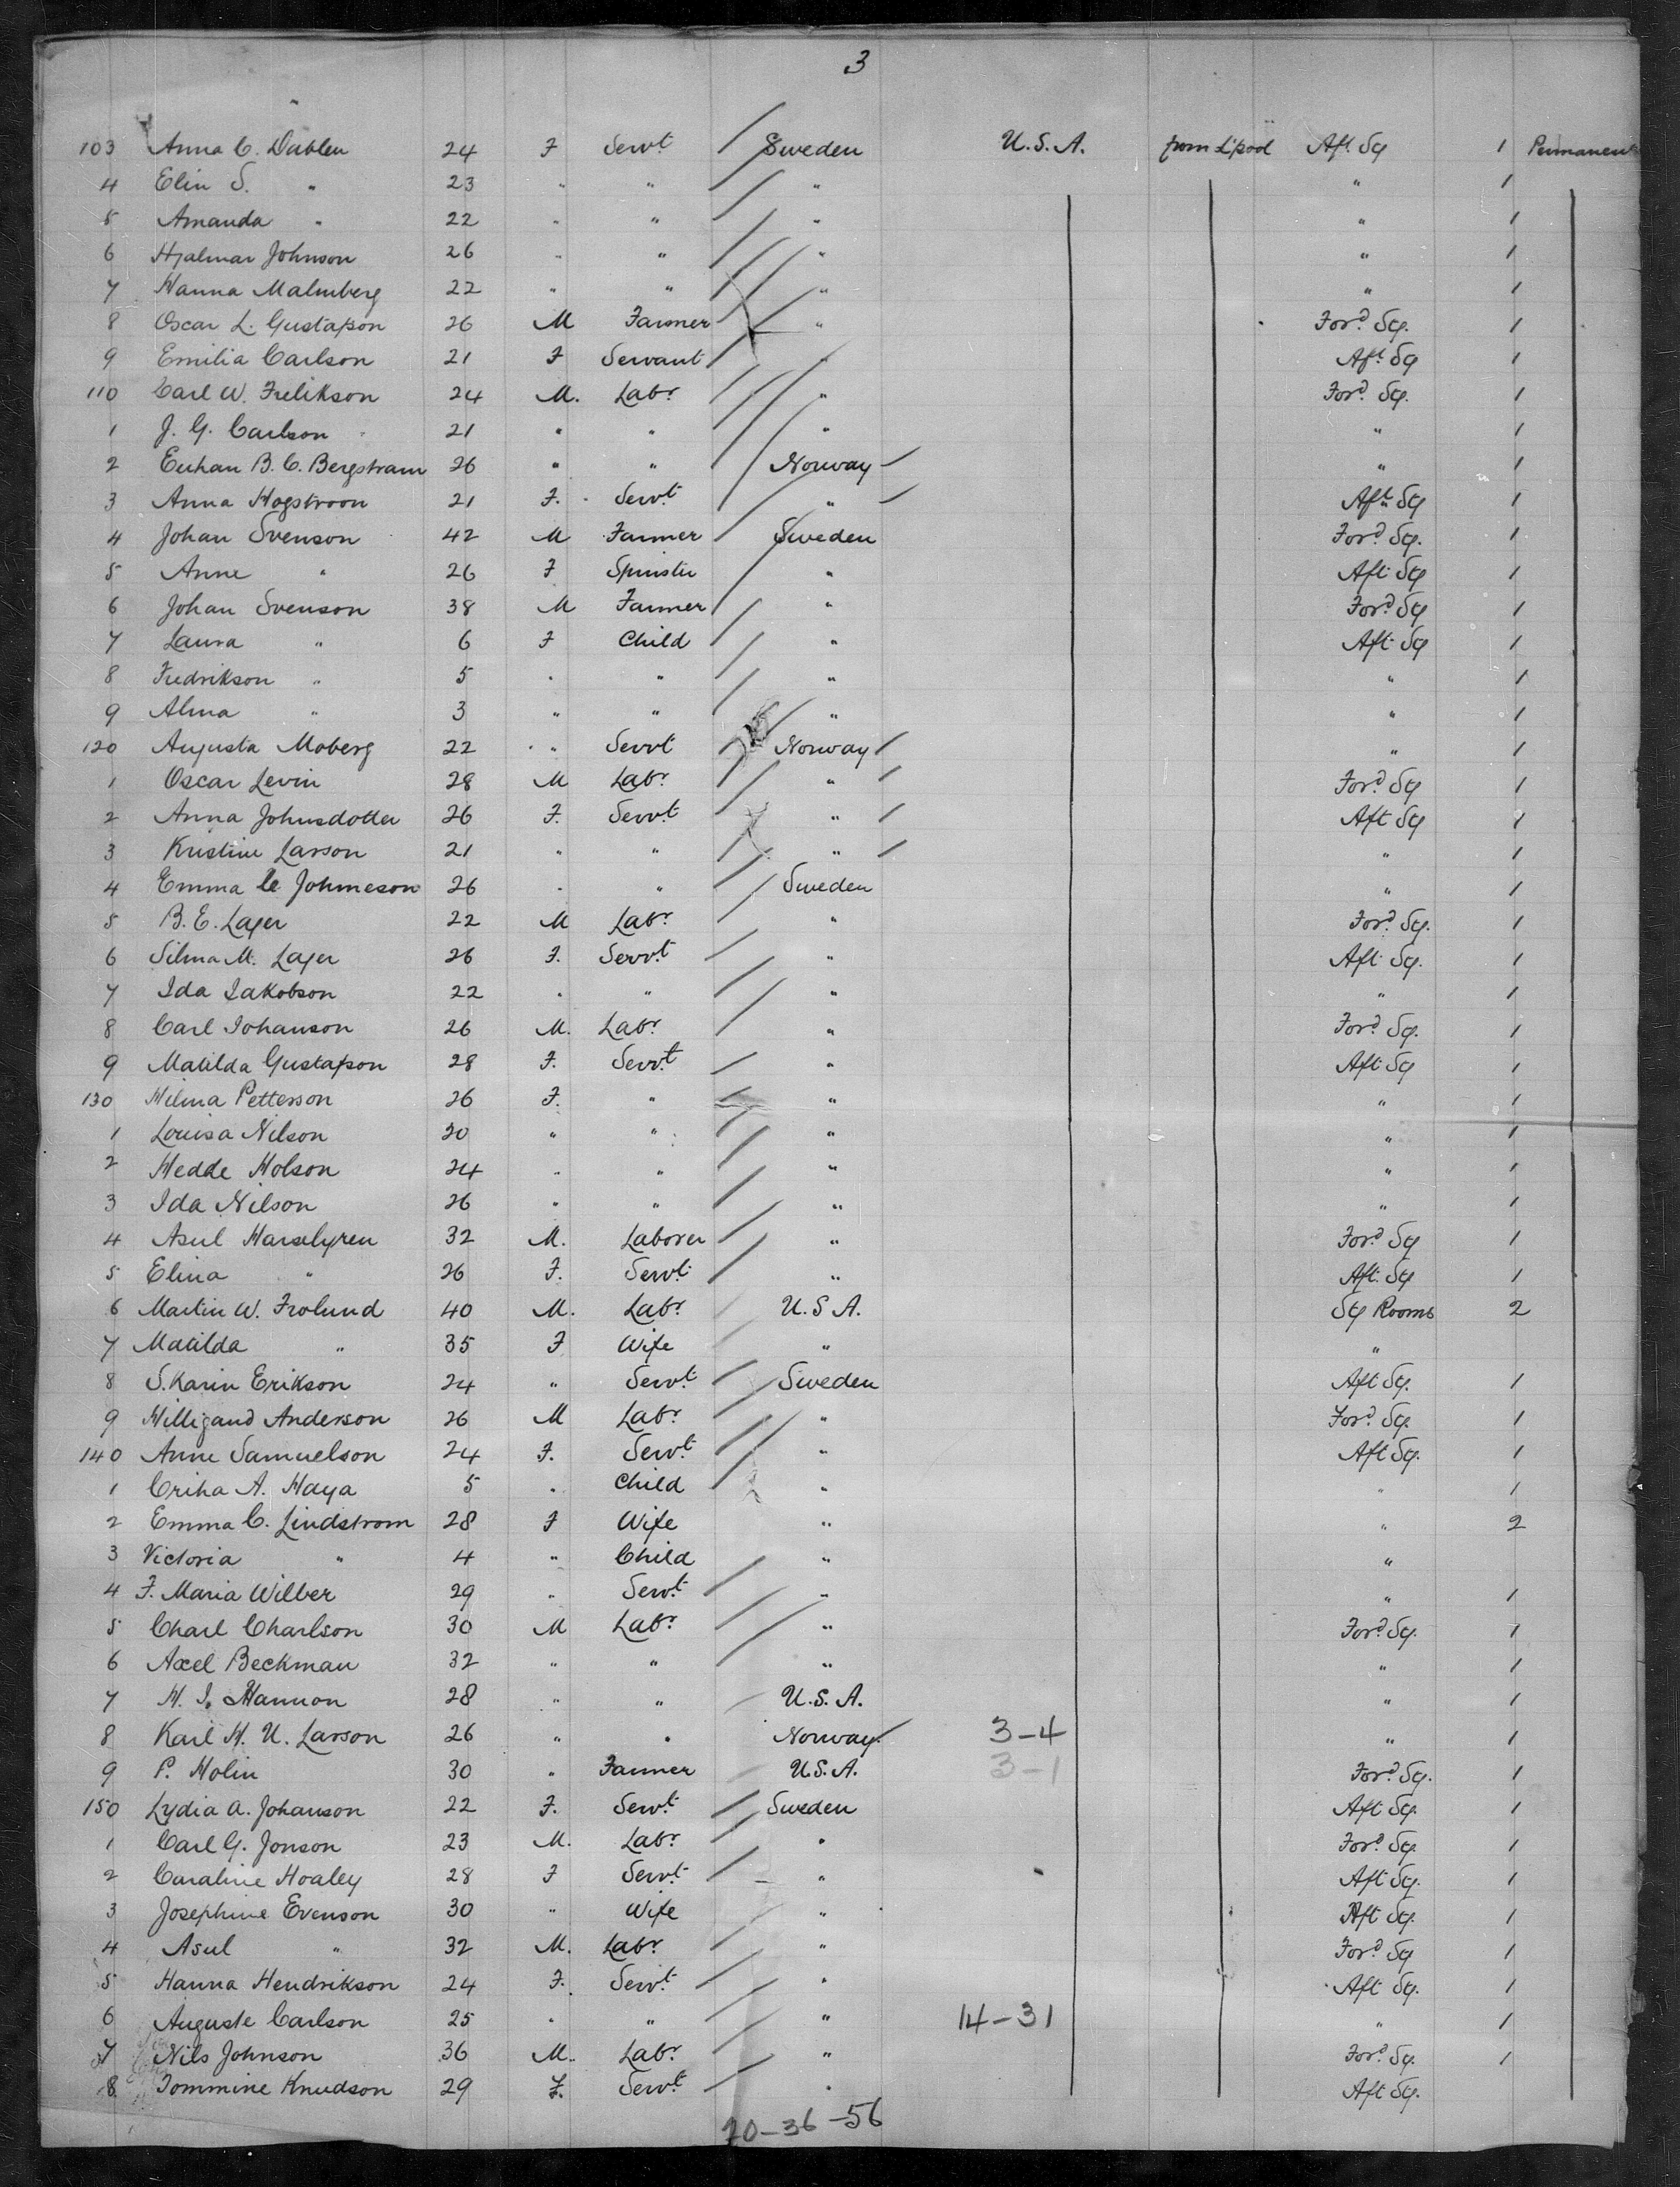 3
103 Anna C. Dahlen 24 F Servt Sweden U.S.A. from L'pool Aft Sg 1 Permanent
4 Elin S. " 23 " " " " 1
5 Amanda " 22 " " " " 1
6 Hjalmar Johnson 26 " " " " 1
7 Hanna Malmberg 22 " " " " 1
8 Oscar L. Gustafson 26 M Farmer " Ford Sg. 1
9 Emilia Carlson 21 F Servant " Aft Sg 1
110 Carl W. Frelikson 24 M. Labr " Ford Sg. 1
1 J. G. Carlson 21 " " " " 1
2 B. C. Bergstram 26 " " Norway " 1
3 Anna Hogstroon 21 F. Servt " Aft Sg 1
4 Johan Svenson 42 M Farmer Sweden Ford Sg. 1
5 Anne " 26 F Spinster " Aft Sg 1
6 Johan Svenson 38 M Farmer " Ford Sg 1
7 Laura " 6 F Child " Aft Sg 1
8 Fredrikson " 5 " " " " 1
9 Alma " 3 " " " " 1
120 Augusta Moberg 22 " Servt Norway " 1
1 Oscar Levin 28 M Labr " Ford Sg 1
2 Anna Johnsdotter 26 F. Servt " Aft Sg 1
3 Kristine Larson 21 " " " " 1
4 Emma Johmeson 26 " " Sweden " 1
5 B. E. Lager 22 M Labr " Ford Sg. 1
6 Silma M. Lager 26 F. Servt " Aft Sg. 1
7 Ida Jakobson 22 " " " " 1
8 Carl Johanson 26 M. Labr " Ford Sg. 1
9 Matilda Gustafson 28 F. Servt " Aft Sg 1
130 Hilma Petterson 26 F. " " " 1
1 Louisa Nilson 20 " " " " 1
2 Hedde Holson 24 " " " " 1
3 Ida Nilson 26 " " " " 1
4 Asul 32 M. Laborer " Ford Sg 1
5 Elina " 26 F. Servt " Aft Sg 1
6 Martin W. Frolund 40 M. Labr U.S A. Sg Rooms 2
7 Matilda " 35 F Wife " "
8 S. Karin Erikson 24 " Servt Sweden Aft Sg. 1
9 Milligand Anderson 26 M Labr " Ford Sg. 1
140 Anne Samuelson 24 F. Servt " Aft Sg. 1
1 Criha A. Haya 5 " Child " " 1
2 Emma C. Lindstrom 28 F Wife " " 2
3 Victoria " 4 " Child " "
4 F. Maria Wilber 29 " Servt " " 1
5 Charl Charlson 30 M Labr " Ford Sg. 1
6 Axel Beckman 32 " " " " 1
7 H. I. Hannon 28 " " U.S. A. " 1
8 Karl H. U. Larson 26 " " Norway 3-4 " 1
9 P. Molin 30 " Farmer U.S.A. 3-1 Ford Sg. 1
150 Lydia A. Johanson 22 F. Servt Sweden Aft Sg. 1
1 Carl G. Jonson 23 M. Labr " Ford Sg 1
2 Caraline Hoaley 28 F Servt " Aft Sg. 1
3 Josephine Evenson 30 " Wife " Aft Sg. 1
4 Asul " 32 M. Labr " Ford Sg 1
5 Hanna Hendrikson 24 F. Servt " Aft Sg. 1
6 Auguste Carlson 25 " " " 14-31 " 1
7 Nils Johnson 36 M. Labr " Ford Sg. 1
8 Tommine Knudson 29 F. Servt " Aft Sg.
20-36-56